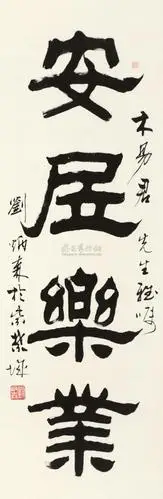 安居樂業
木易君先生雅嘱
劉炳森於